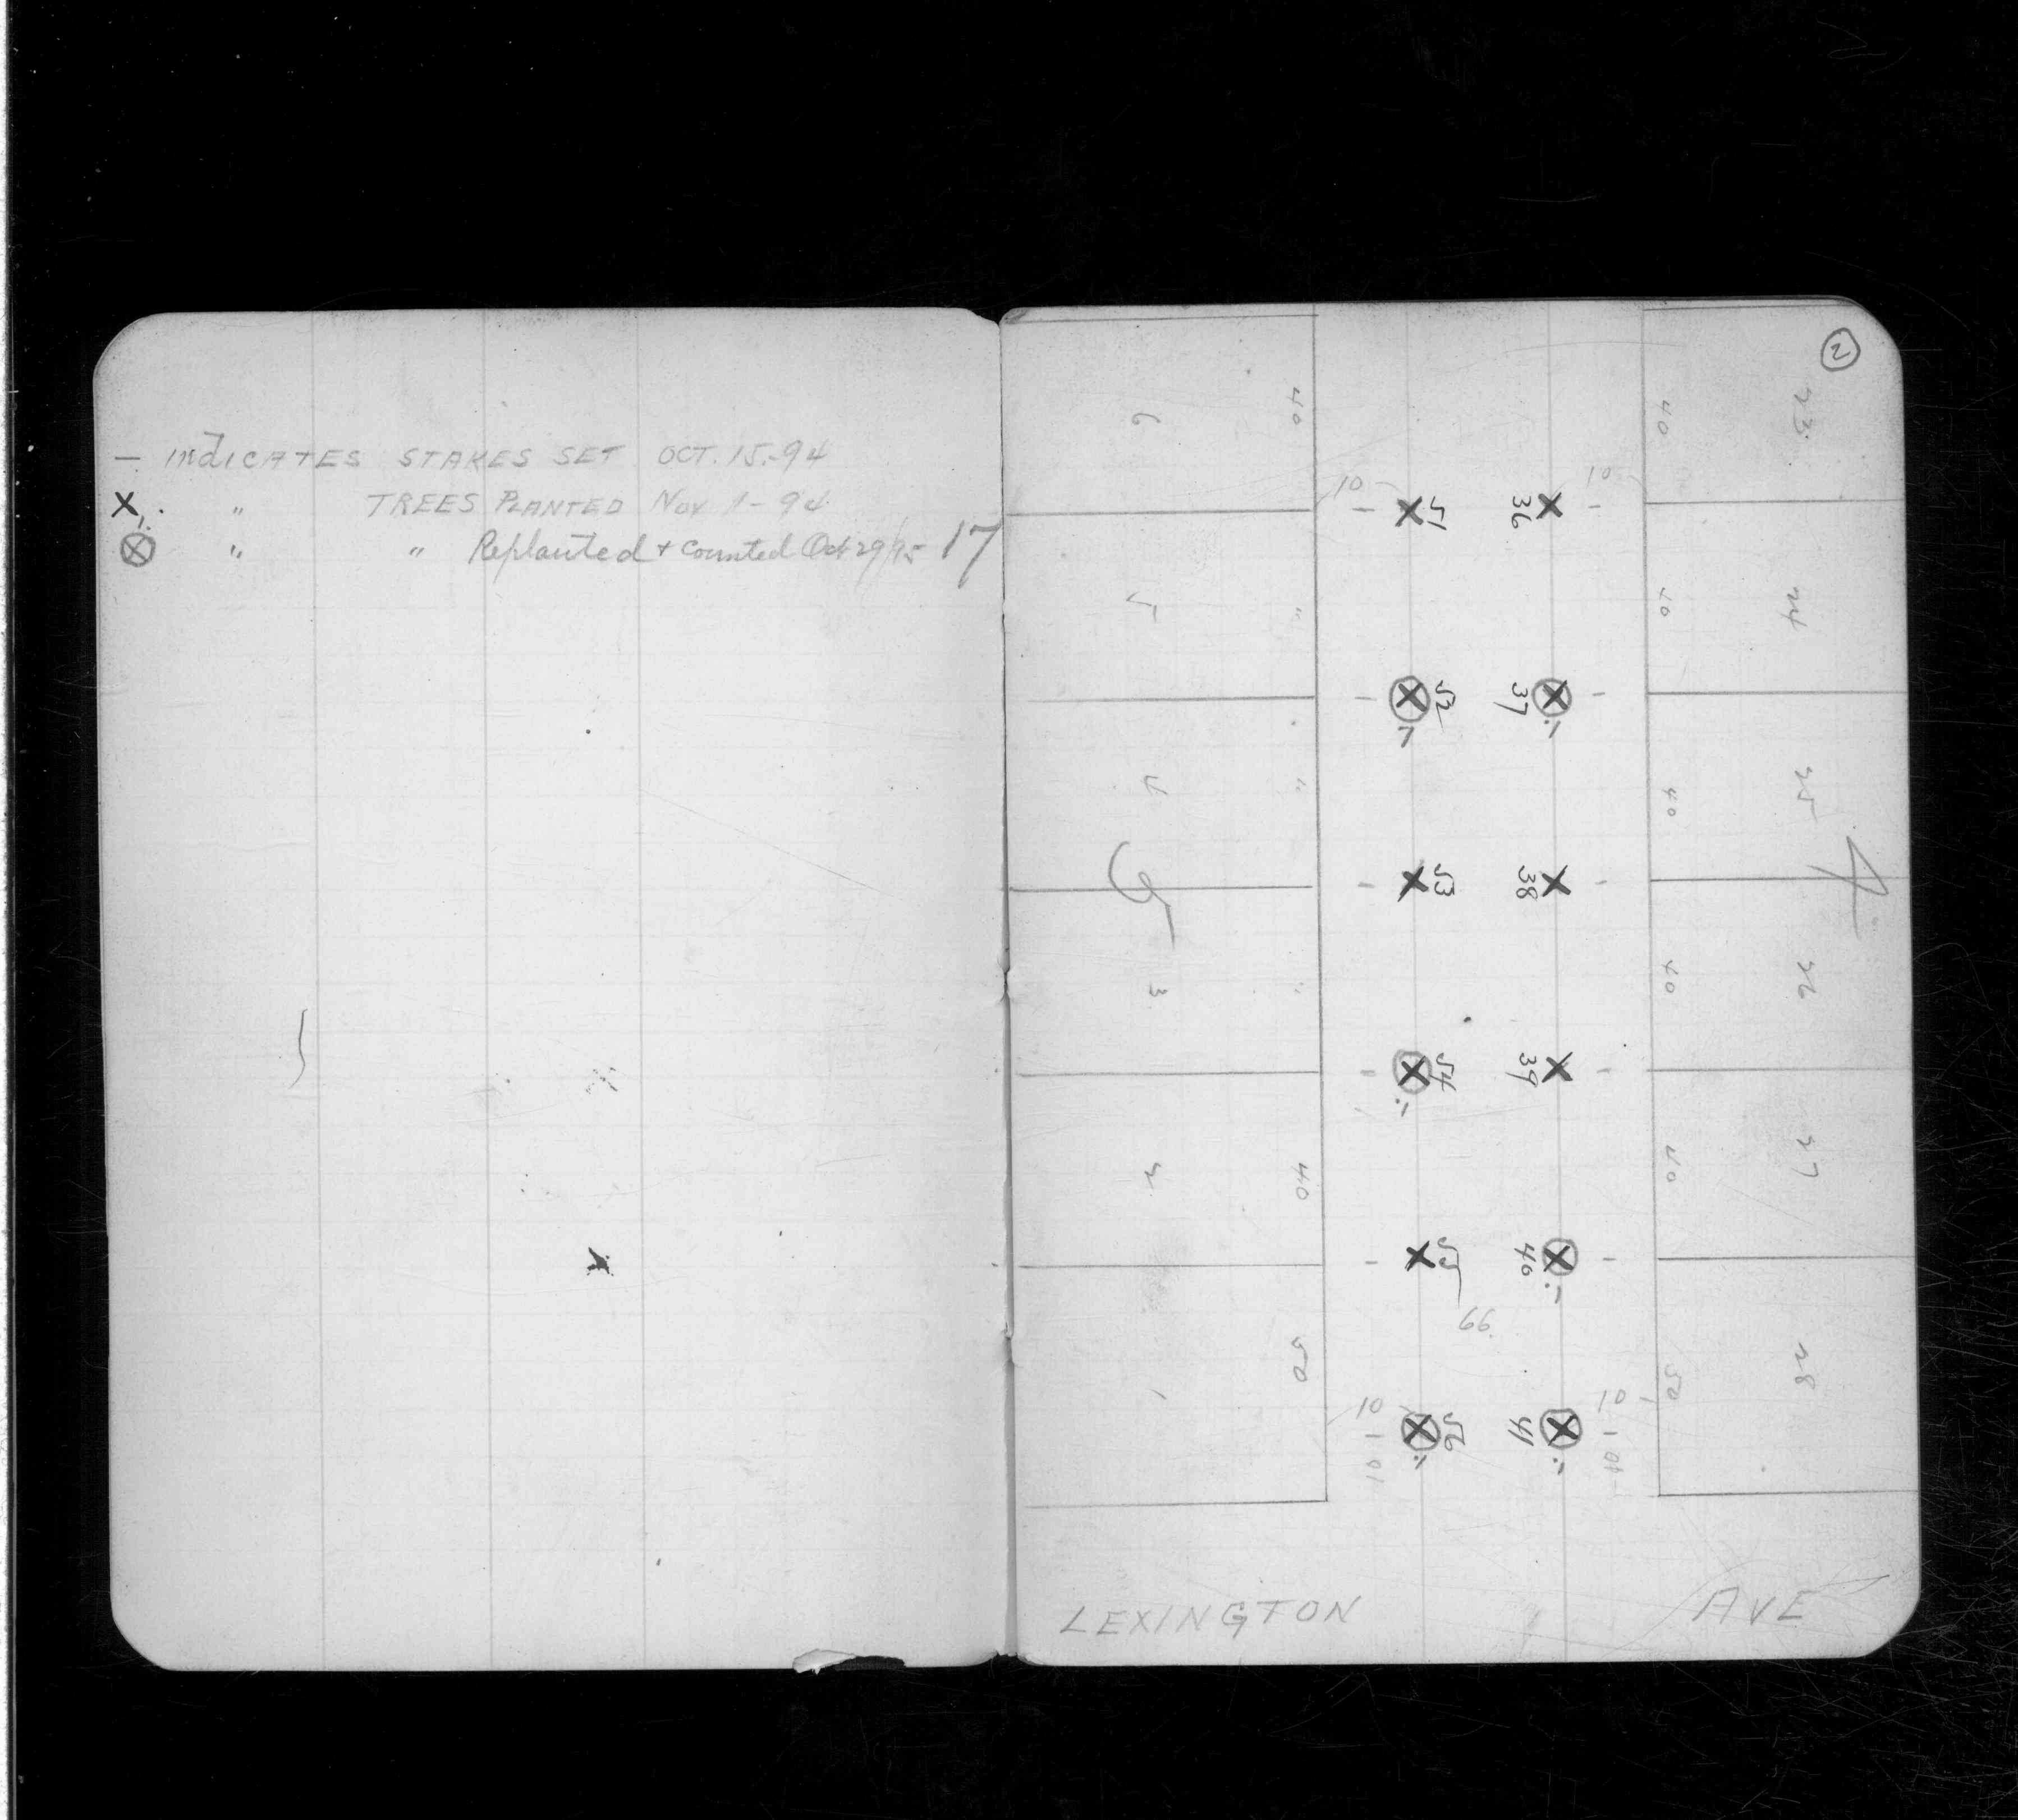 — INDICATES STAKES SET OCT. 15.-94
X " TREES PLANTED NOV 1-94
⊗ " " Replanted + Counted Oct 29/95 17
2
6 40 40 23
10 10
51 36
5 " 40 24
52 37
4 " 40 25
5 4
53 38
3 " 40 26
54 39
2 40 40 27
55 40
66
1 50 50 28
10 10
56 41
10 10
LEXINGTON AVE